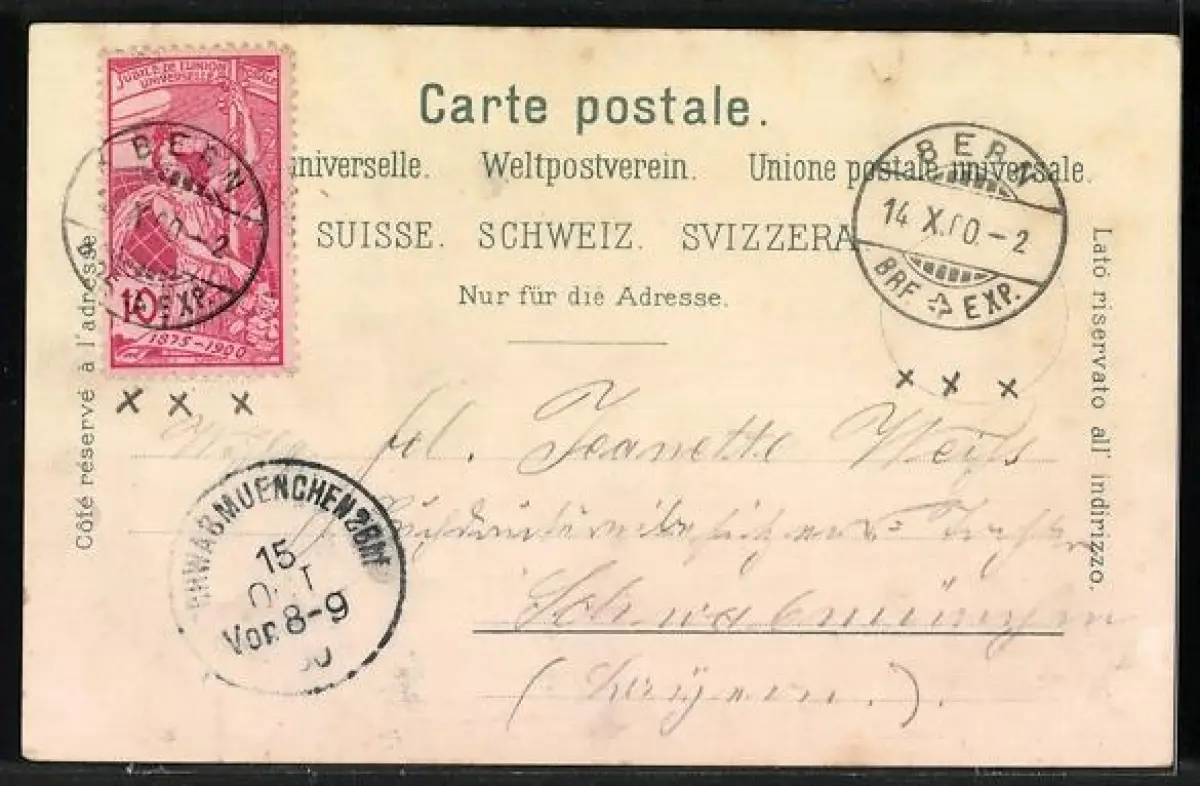 JUBILÉ DE L'UNION
UNIVERSELLE
10
1875-1900
BERN
X.00.-2
EXP.
Carte postale.
universelle. Weltpostverein. Unione postale universale.
SUISSE. SCHWEIZ. SVIZZERA
Nur für die Adresse.
BERN
14.X.00.-2
BRF. EXP.
Côté réservé à l'adresse
Lato riservato all' indirizzo.
x x x
x x x
Jeanette Weiß
Schwabmünchen
(Bayern.).
SCHWABMUENCHEN 2BHF
15
OCT
Vor. 8-9
00